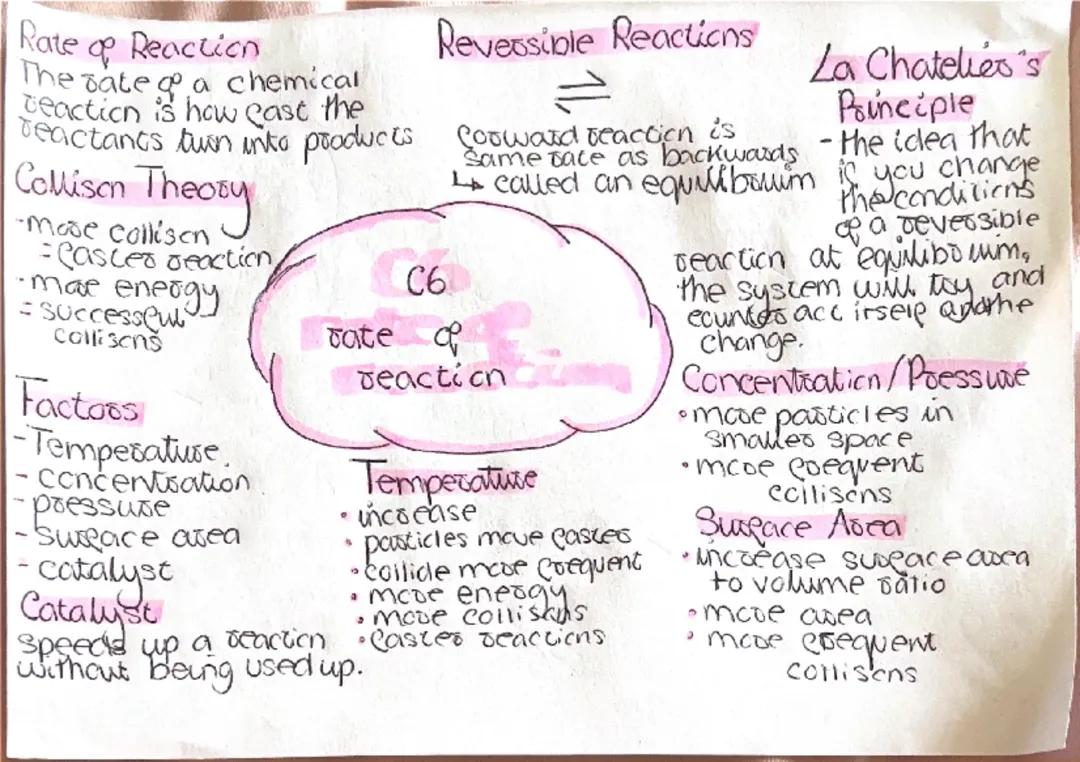 Rate of Reaction
The rate of a chemical
reaction is how fast the
reactants turn into products
Collison Theory
- more collison
= faster reaction
- more energy
= successful
collisons
Factors
- Temperature
- concentration
- pressure
- surface area
- catalyst
Catalyst
speeds up a reaction
without being used up.
Reversible Reactions
⇌
forward reaction is
same rate as backwards
↳ called an equilibrium
C6
rate of
reaction
Temperature
• increase
• particles move faster
• collide more frequent
• more energy
• more collisons
• faster reactions
La Chatelier's
Principle
- the idea that
if you change
the conditions
of a reversible
reaction at equilibrium,
the system will try and
counter act itself and the
change.
Concentration/Pressure
• more particles in
smaller space
• more frequent
collisons
Surface Area
• increase surface area
to volume ratio
• more area
• more frequent
collisons